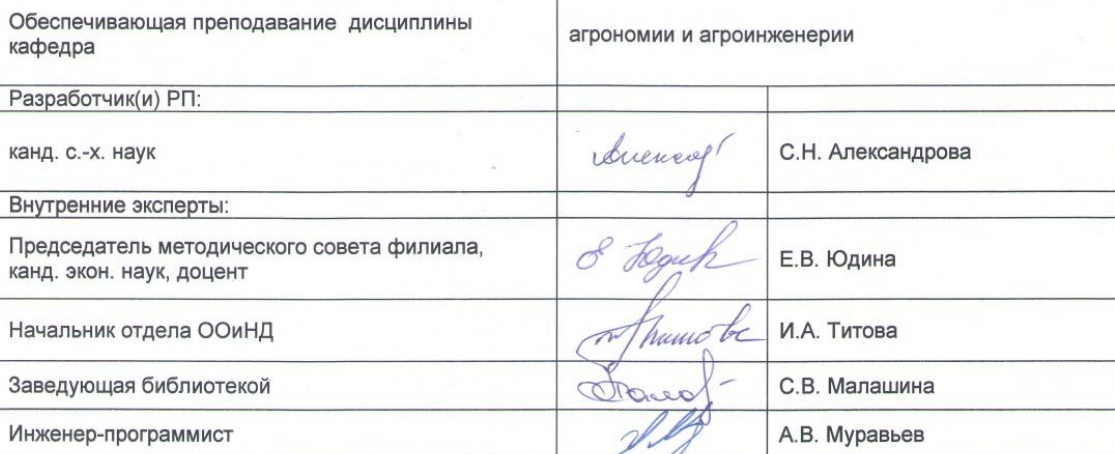 Обеспечивающая преподавание дисциплины
кафедра
агрономии и агроинженерии
Разработчик(и) РП:
канд. с.-х. наук
С.Н. Александрова
Внутренние эксперты:
Председатель методического совета филиала,
канд. экон. наук, доцент
Е.В. Юдина
Начальник отдела ООиНД
И.А. Титова
Заведующая библиотекой
С.В. Малашина
Инженер-программист
А.В. Муравьев